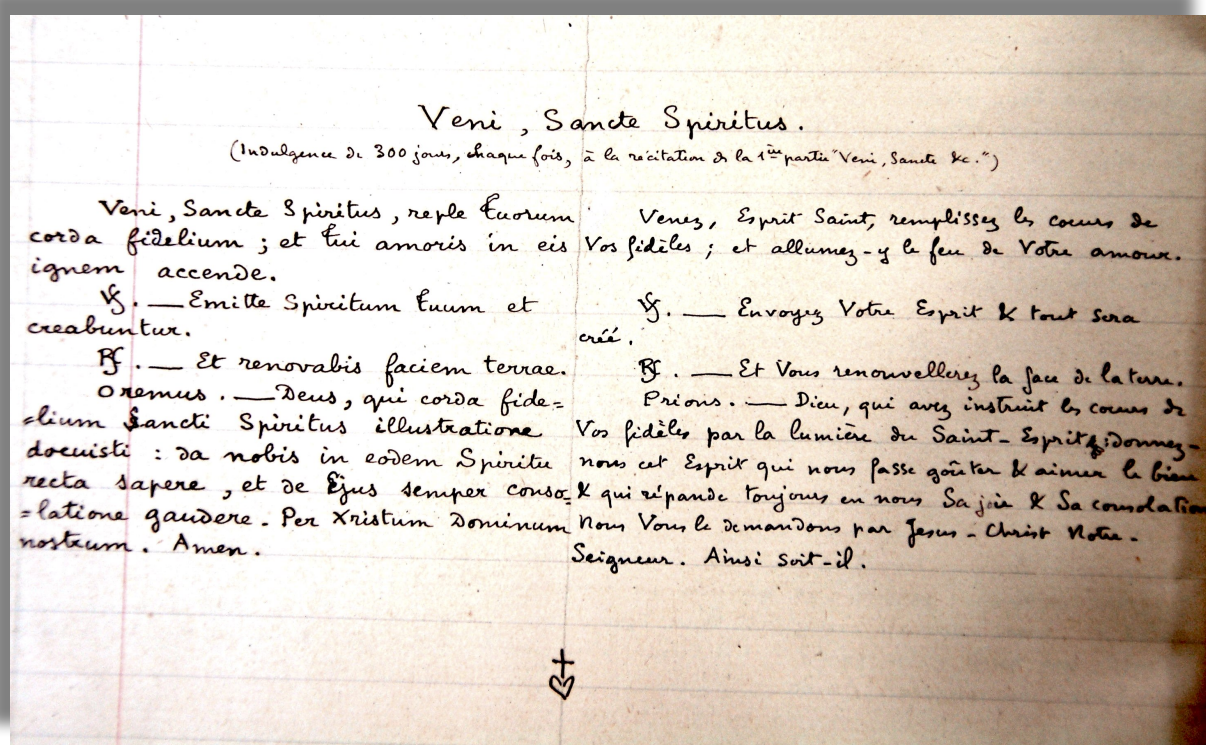 Veni, Sancte Spiritus.
(Indulgence de 300 jours, chaque fois, à la récitation de la 1ère partie "Veni, Sancte &c.")
Veni, Sancte Spiritus, reple tuorum
corda fidelium ; et tui amoris in eis
ignem accende.
℣. — Emitte Spiritum tuum et
creabuntur.
℟. — Et renovabis faciem terrae.
Oremus. — Deus, qui corda fide=
=lium Sancti Spiritus illustratione
docuisti : da nobis in eodem Spiritu
recta sapere, et de Ejus semper conso=
=latione gaudere. Per Xristum Dominum
nostrum. Amen.
Venez, Esprit Saint, remplissez les coeurs de
Vos fidèles ; et allumez-y le feu de Votre amour.
℣. — Envoyez Votre Esprit & tout sera
créé.
℟. — Et Vous renouvellerez la face de la terre.
Prions. — Dieu, qui avez instruit les coeurs de
Vos fidèles par la lumière du Saint-Esprit ; donnez-
nous cet Esprit qui nous fasse goûter & aimer le bien
& qui répande toujours en nous Sa joie & Sa consolation
Nous Vous le demandons par Jesus-Christ Notre-
Seigneur. Ainsi soit-il.